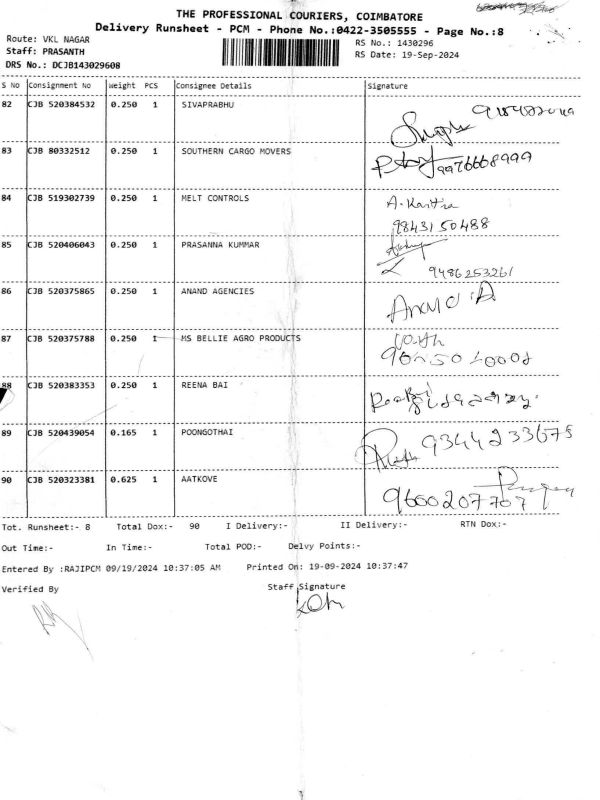 THE PROFESSIONAL COURIERS, COIMBATORE
Delivery Runsheet - PCM - Phone No.:0422-3505555 - Page No.:8
Route: VKL NAGAR
Staff: PRASANTH
DRS No.: DCJB143029608
RS No.: 1430296
RS Date: 19-Sep-2024
S No Consignment No Weight PCS Consignee Details Signature
82 CJB 520384532 0.250 1 SIVAPRABHU
83 CJB 80332512 0.250 1 SOUTHERN CARGO MOVERS
9976668999
84 CJB 519302739 0.250 1 MELT CONTROLS
9843150488
85 CJB 520406043 0.250 1 PRASANNA KUMMAR
9486253261
86 CJB 520375865 0.250 1 ANAND AGENCIES
Anand .A
87 CJB 520375788 0.250 1 MS BELLIE AGRO PRODUCTS
88 CJB 520383353 0.250 1 REENA BAI
89 CJB 520439054 0.165 1 POONGOTHAI
9344233675
90 CJB 520323381 0.625 1 AATKOVE
9600207707
Tot. Runsheet:- 8 Total Dox:- 90 I Delivery:- II Delivery:- RTN Dox:-
Out Time:- In Time:- Total POD:- Delvy Points:-
Entered By :RAJIPCM 09/19/2024 10:37:05 AM Printed On: 19-09-2024 10:37:47
Verified By Staff Signature